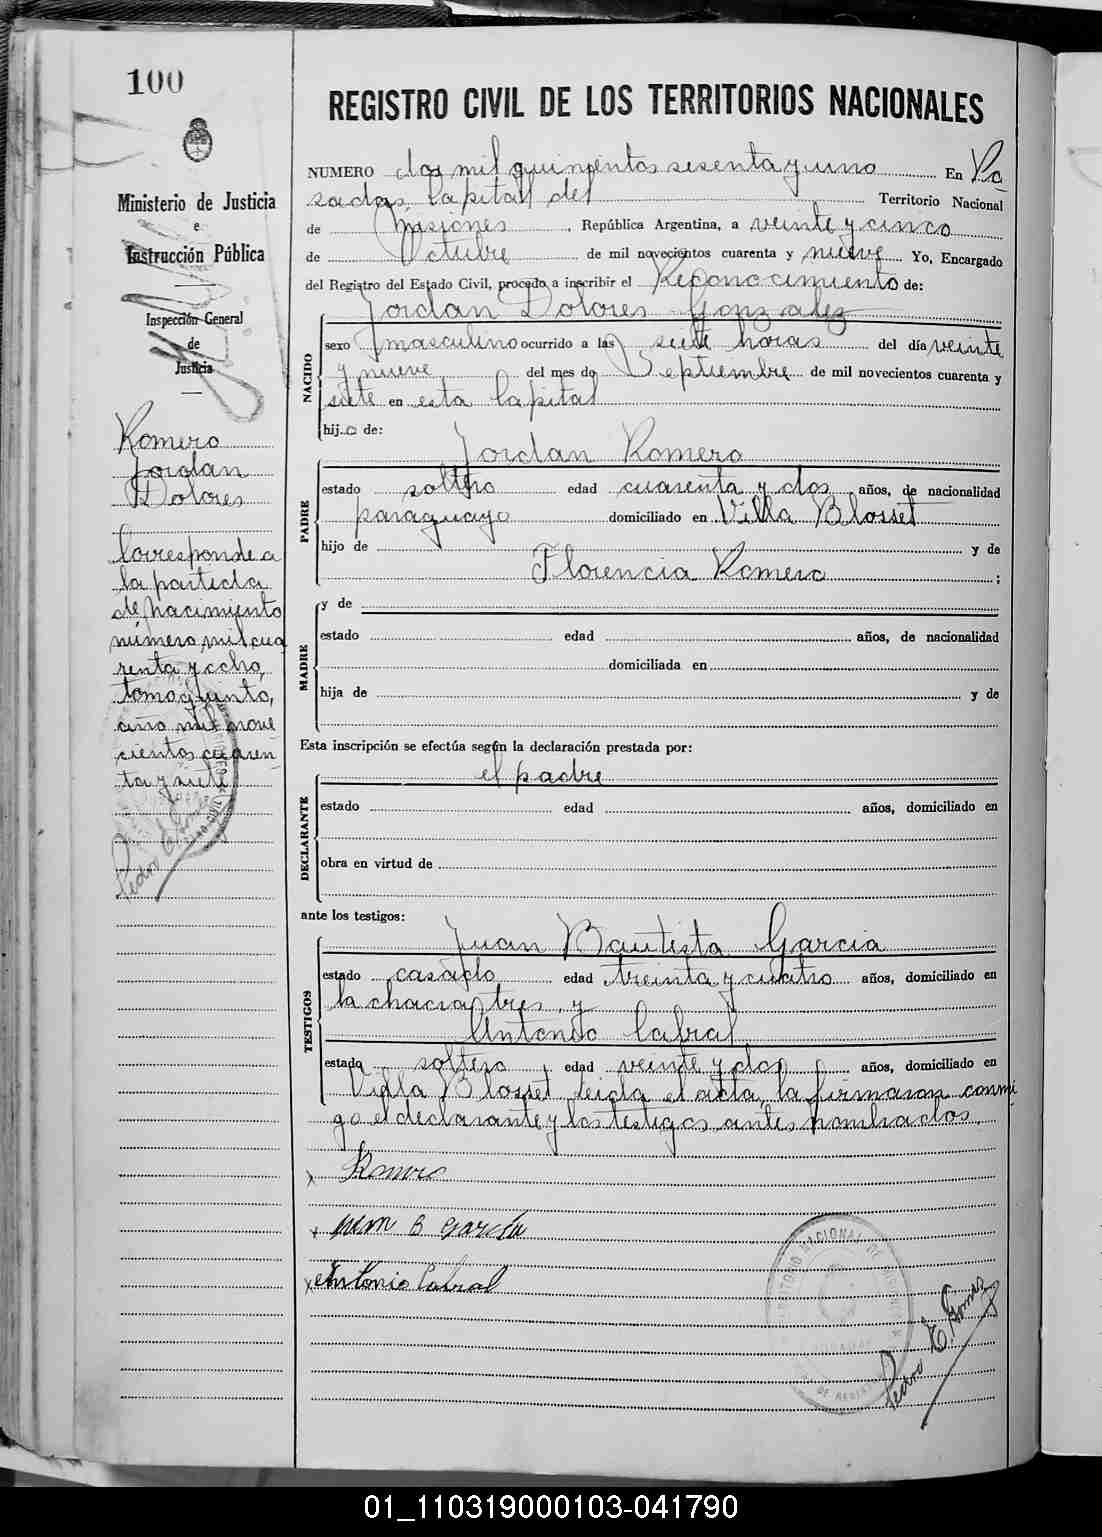 100
REGISTRO CIVIL DE LOS TERRITORIOS NACIONALES
Ministerio de Justicia
e
Instrucción Pública
Inspección General
de
Justicia
Romero
Jordan
Dolores
Corresponde a
la partida
de nacimiento
número mil cua
renta y ocho,
tomo quinto,
año mil nove
cientos cuaren
ta y siete
Pedro E. Gomez
NUMERO dos mil quinientos sesenta y uno En Po
sadas Capital del Territorio Nacional
de Misiones, República Argentina, a veinte y cinco
de Octubre de mil novecientos cuarenta y nueve Yo, Encargado
del Registro del Estado Civil, procedo a inscribir el Reconocimiento de:
Jordan Dolores Gonzalez
NACIDO
sexo masculino ocurrido a las siete horas del día veinte
y nueve del mes de Septiembre de mil novecientos cuarenta y
siete en esta Capital
hijo de:
Jordan Romero
PADRE
estado soltero edad cuarenta y dos años, de nacionalidad
paraguayo domiciliado en Villa Blosset
hijo de y de
Florencia Romero ;
MADRE
y de
estado edad años, de nacionalidad
domiciliada en
hija de y de
Esta inscripción se efectúa según la declaración prestada por:
el padre
DECLARANTE
estado edad años, domiciliado en
obra en virtud de
ante los testigos:
Juan Bautista Garcia
TESTIGOS
estado casado edad treinta y cuatro años, domiciliado en
la chacra tres, y
Antonio Cabral
estado soltero edad veinte y dos años, domiciliado en
Villa Blosset leida el acta, la firmaron conmi
go el declarante y los testigos antes nombrados.
x Romero
x Juan B Garcia
x Antonio Cabral
Pedro E. Gomez
01_110319000103-041790